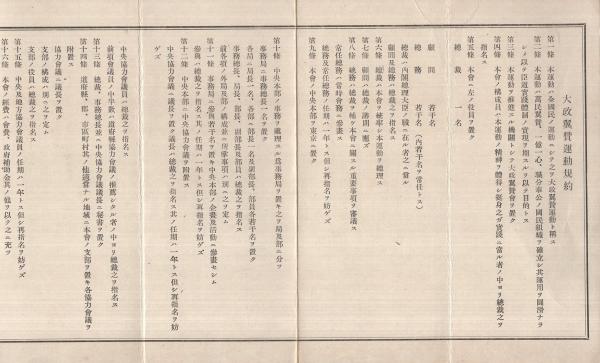 大政翼賛運動規約
第一條　本運動ハ全國民ノ運動ニシテ之ヲ大政翼賛運動ト稱ス
第二條　本運動ハ萬民翼賛、一億一心、職分奉公ノ國民組織ヲ確立シ其運用ヲ圓滑ナラ
シメ以テ臣道實踐體制ノ實現ヲ期スルヲ以テ目的トス
第三條　本運動ヲ推進スル機關トシテ大政翼賛會ヲ置ク
第四條　本會ノ構成員ハ本運動ノ精神ヲ體得シ挺身之ガ實踐ニ當ル者ノ中ヨリ總裁之ヲ
指名ス
第五條　本會ニ左ノ役員ヲ置ク
總裁　一名
總務　若干名（內若干名ヲ常任トス）
顧問　若干名
總裁ハ內閣總理大臣ノ職ニ在ル者之ニ當ル
顧問及總務ハ總裁之ヲ指名ス
第六條　總裁ハ本會ヲ統率シ本運動ヲ總理ス
第七條　顧問ハ總裁ノ諮問ニ應ズ
第八條　總務ハ總裁ヲ補ケ本會ニ關スル重要事項ヲ審議ス
常任總務ハ常時會務ニ參畫ス
總務及常任總務ノ任期ハ一年トス但シ再指名ヲ妨ゲズ
第九條　本會ノ中央本部ヲ東京ニ置ク
第十條　中央本部ノ事務ヲ處理スル爲事務局ヲ置キ之ヲ局及部ニ分ツ
事務局ニ事務總長一名ヲ置ク
各局ニ局長一名、各部ニ部長一名及副部長、部員各若干名ヲ置ク
事務總長、局長、部長、副部長及部員ハ總裁之ヲ指名ス
前各項ノ外局及部ノ構成竝ニ所掌事項ハ別ニ之ヲ定ム
第十一條　事務局ニ參與若干名ヲ置キ中央本部ノ企畫及活動ニ參畫セシム
參與ハ總裁之ヲ指名ス其ノ任期ハ一年トス但シ再指名ヲ妨ゲズ
第十二條　中央本部ニ中央協力會議ヲ附置ス
中央協力會議ニ議長ヲ置ク議長ハ總裁之ヲ指名ス其ノ任期ハ一年トス但シ再指名ヲ妨
ゲズ
中央協力會議員ハ總裁之ヲ指名ス
前項會議員ノ半數ハ道府縣協力會議ノ推薦シタル者ノ中ヨリ總裁之ヲ指名ス
第十三條　總裁、事務總長及中央協力會議議長ニ秘書ヲ置ク
第十四條　道府縣、郡、市區町村其ノ他適當ナル地域ニ本會ノ支部ヲ置キ各協力會議ヲ
附置ス
協力會議ニ議長ヲ置ク
支部ノ構成ハ別ニ之ヲ定ム
支部ノ役員ハ總裁之ヲ指名ス
第十五條　支部及地方協力會議員ノ任期ハ一年トス但シ再指名ヲ妨ゲズ
第十六條　本會ノ經費ハ會費、政府補助金其ノ他ヲ以テ之ニ充ツ